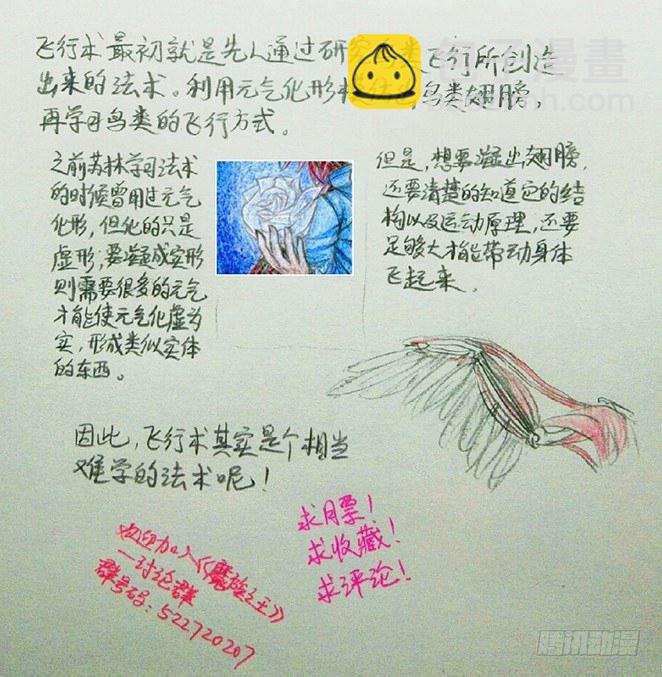 飞行术最初就是先人通过研究类飞行所创造
出来的法术。利用元气化形鸟类翅膀，
再学习鸟类的飞行方式。
之前苏林学习法术
的时候曾用过元气
化形，但化的只是
虚形；要凝成实形
则需要很多的元气
才能使元气化虚为
实，形成类似实体
的东西。
但是，想要凝出翅膀，
还要清楚的知道它的结
构以及运动原理，还要
足够大才能带动身体
飞起来。
因此，飞行术其实是个相当
难学的法术呢！
求月票！
求收藏！
求评论！
欢迎加入《魔族之王》
—讨论群
群号码：522720207
包子漫畫
腾讯动漫